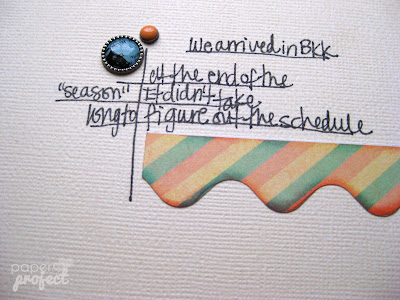 We arrived in BKK
at the end of the
"season" It didn't take
long to figure out the schedule
paper project